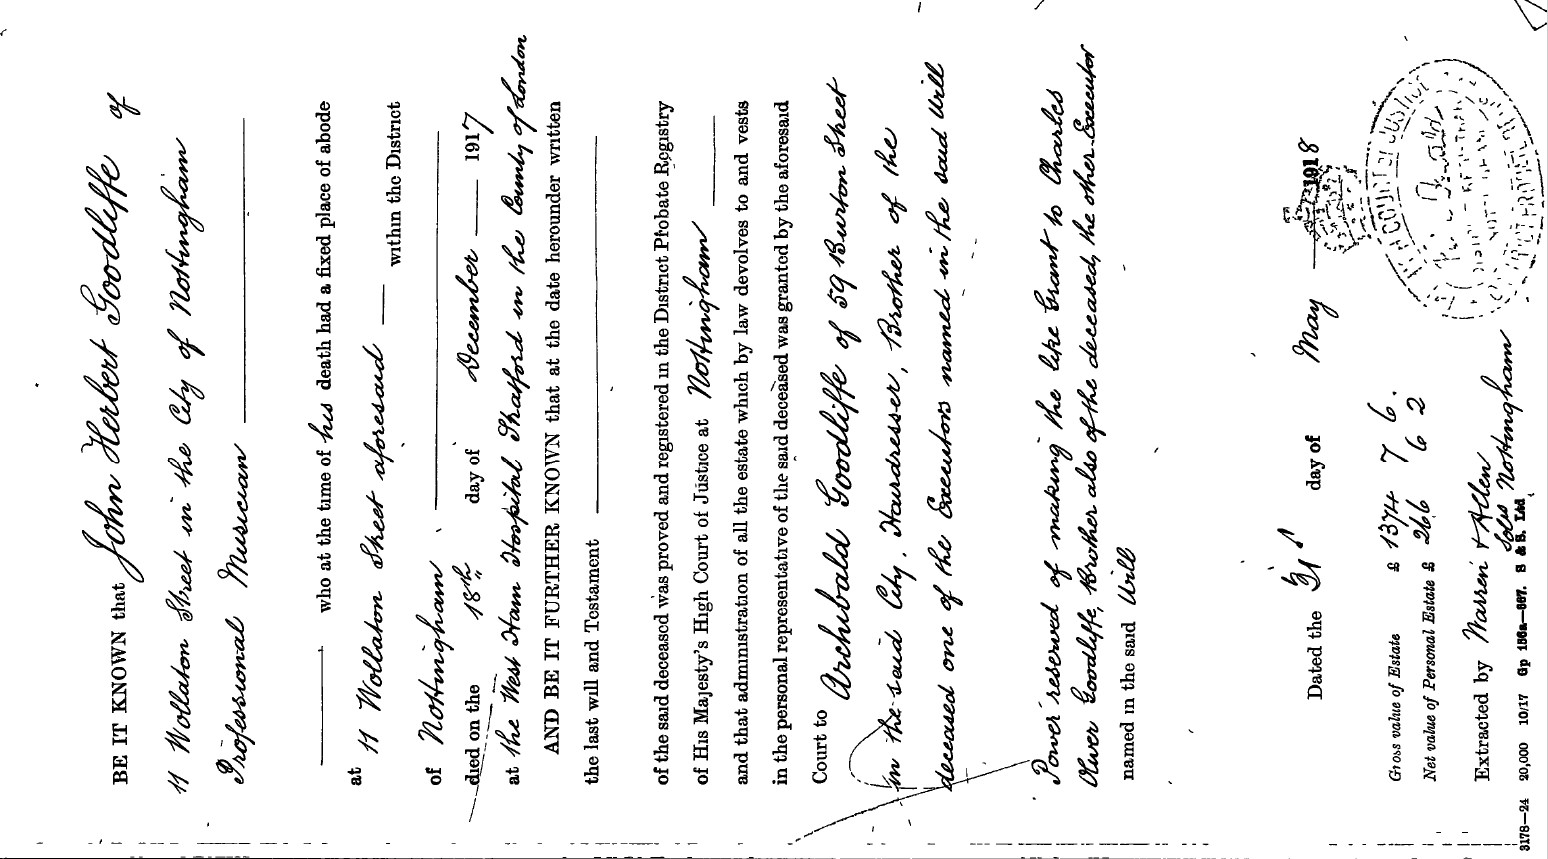 BE IT KNOWN that John Herbert Goodliffe of
11 Wollaton Street in the City of Nottingham
Professional Musician
who at the time of his death had a fixed place of abode
at 11 Wollaton Street aforesaid within the District
of Nottingham
died on the 18th day of December 1917
at the West Ham Hospital Stratford in the County of London
AND BE IT FURTHER KNOWN that at the date hereunder written
the last will and Testament
of the said deceased was proved and registered in the District Probate Registry
of His Majesty's High Court of Justice at Nottingham
and that administration of all the estate which by law devolves to and vests
in the personal representative of the said deceased was granted by the aforesaid
Court to Archibald Goodliffe of 59 Burton Street
in the said City, Hairdresser, Brother of the
deceased one of the Executors named in the said Will
Power reserved of making the like Grant to Charles
Oliver Goodliffe, Brother also of the deceased, the other Executor
named in the said Will
Dated the day of May 1918
Gross value of Estate £ 1374 7 6.
Net value of Personal Estate £ 266 6 2
Extracted by Warren & Allen
Solrs Nottingham
3178—24 20,000 10/17 Gp 156a—667. S & S. Ltd
COURT OF JUSTICE